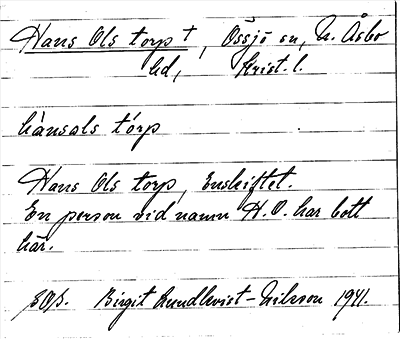 Hans Ols torp +, Össjö sn, N. Åsbo
hd, Krist. l.
hànsals tórp
Hans Ols torp, Enskiftet.
En person vid namn H. O. har bott
här.
Birgit Rundkvist-Nilsson 1941.